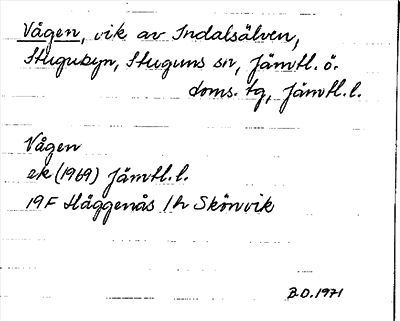 Vågen, vik av Indalsälven,
Stugubyn, Stuguns sn, Jämtl. ö.
doms. tg, Jämtl. l.
Vågen
ek (1969) Jämtl. l.
19F Häggenås 1h Skönvik
B.O. 1971